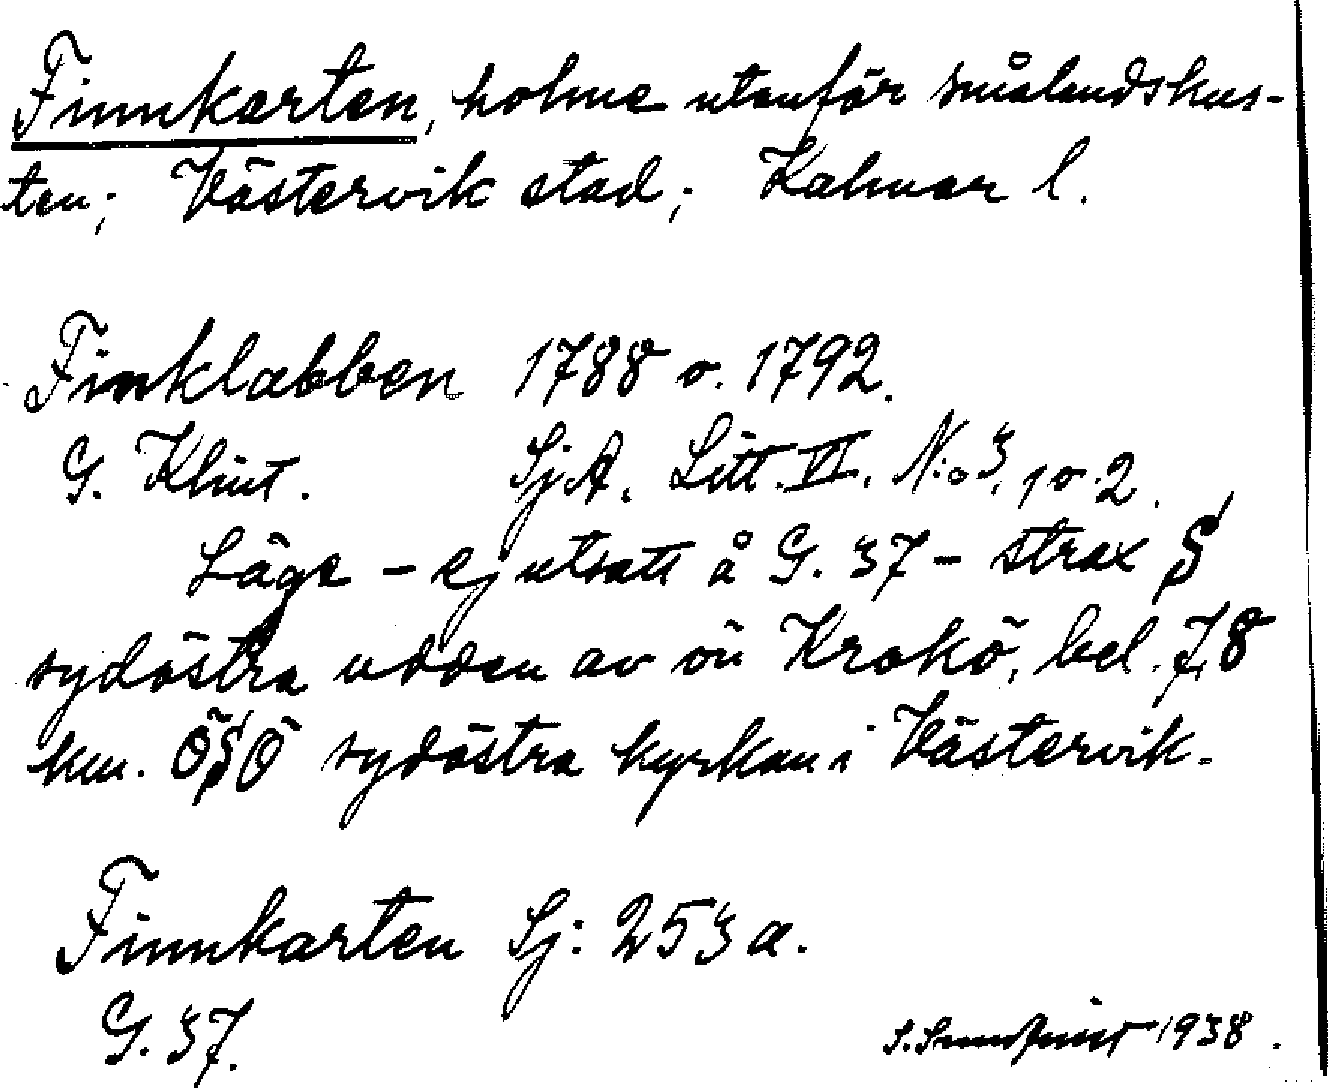 Finnkarten, holme utanför smålandskus-
ten; Västervik stad; Kalmar l.
Finklabben 1788 o. 1792.
G. Klint. Sj.A. Litt. VI. N:o 3, 1 o. 2.
Läge - ej utsatt å G. 37 - strax S
sydöstra udden av ön Krokö, bel. 7,8
km. ÖSÖ sydöstra kyrkan i Västervik.
Finnkarten Sj: 253 a.
G. 37.
S. Sundquist 1938.